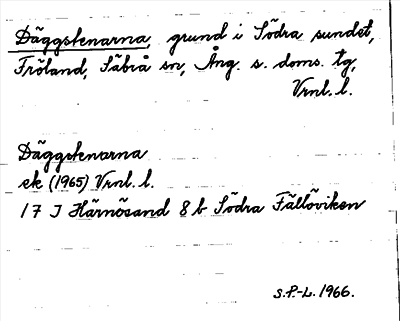 Däggstenarna, grund i Södra sundet,
Fröland, Säbrå sn, Ång. s. doms. tg,
Vrnl. l.
Däggstenarna
ek (1965) Vrnl. l.
17 J Härnösand 8 b Södra Fällöviken
S.P.-L. 1966.